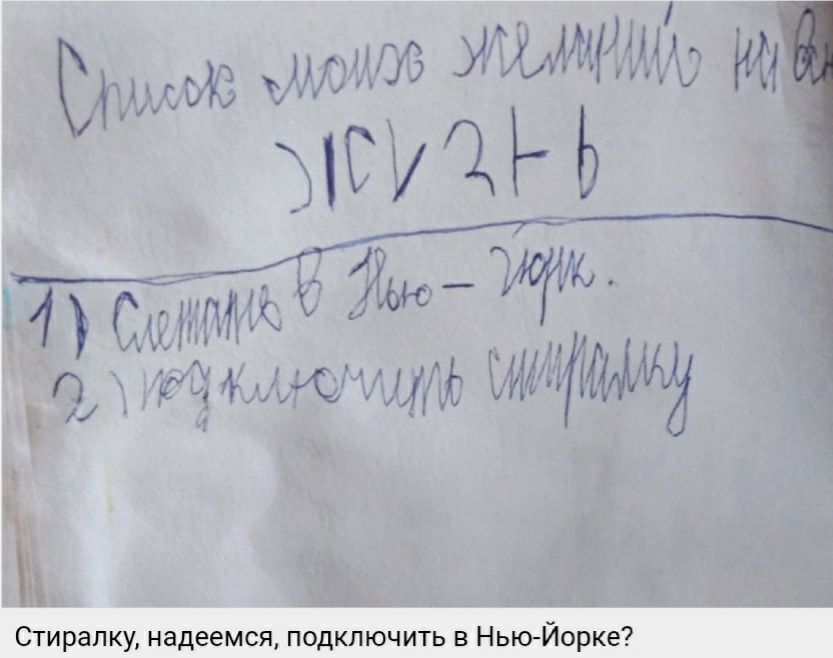 Список моих желаний на
ЖИЗНЬ
1) Слетать в Нью-Йорк.
2) подключить стиралку
Стиралку, надеемся, подключить в Нью-Йорке?